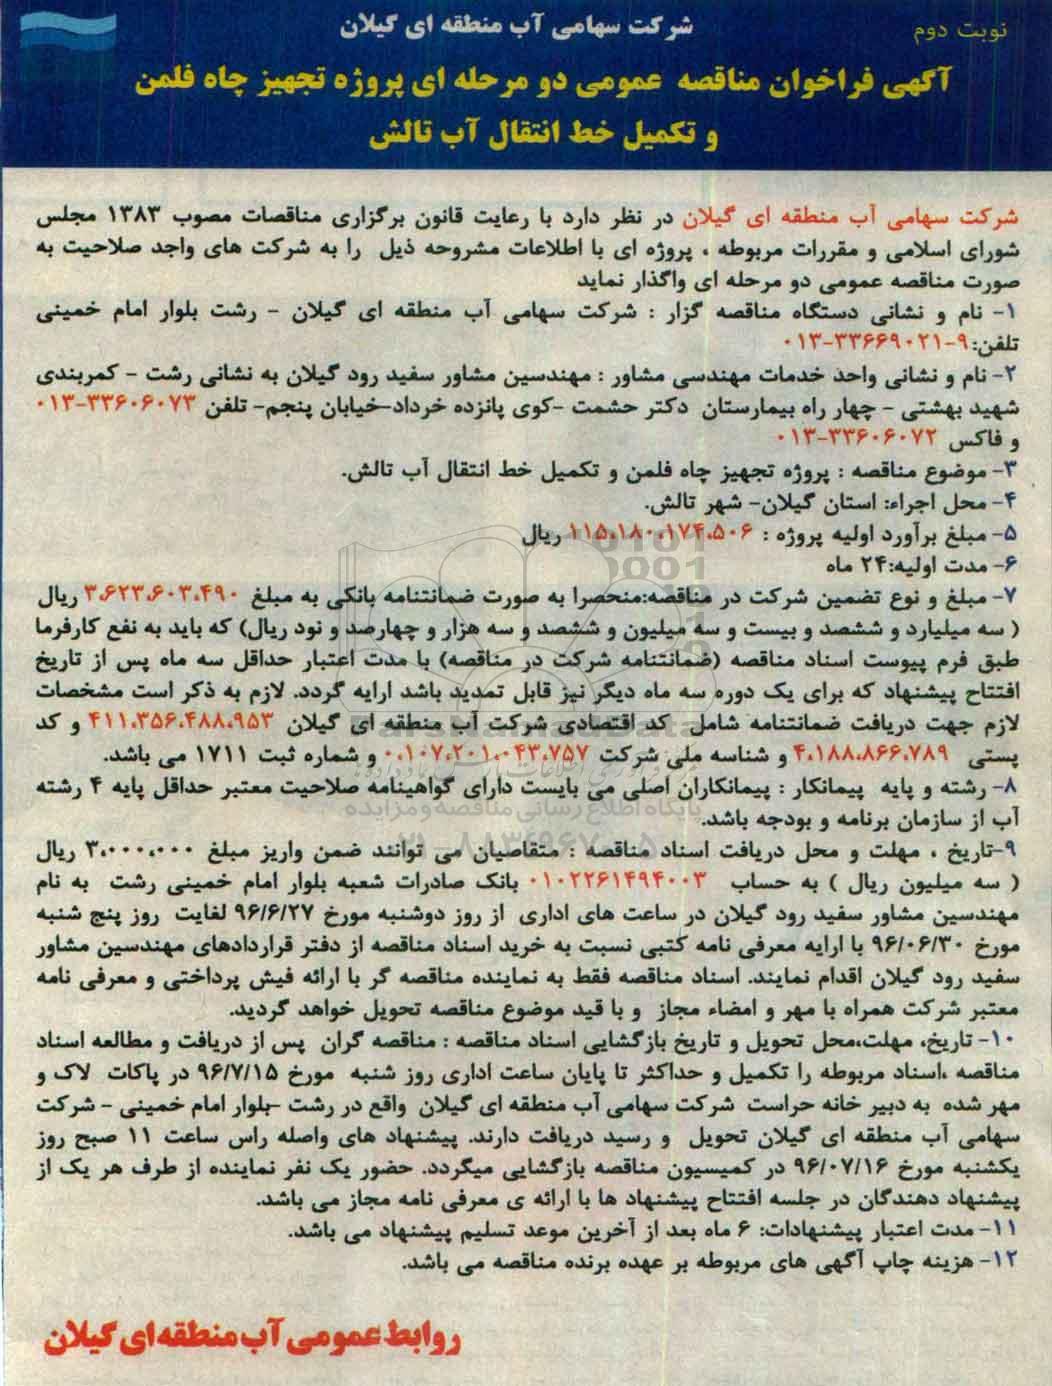 نوبت دوم
شرکت سهامی آب منطقه ای گیلان
آگهی فراخوان مناقصه عمومی دو مرحله ای پروژه تجهیز چاه فلمن
و تکمیل خط انتقال آب تالش
شرکت سهامی آب منطقه ای گیلان در نظر دارد با رعایت قانون برگزاری مناقصات مصوب ۱۳۸۳ مجلس
شورای اسلامی و مقررات مربوطه ، پروژه ای با اطلاعات مشروحه ذیل را به شرکت های واجد صلاحیت به
صورت مناقصه عمومی دو مرحله ای واگذار نماید
۱- نام و نشانی دستگاه مناقصه گزار : شرکت سهامی آب منطقه ای گیلان - رشت بلوار امام خمینی
تلفن:۹-۳۳۶۶۹۰۲۱-۰۱۳
۲- نام و نشانی واحد خدمات مهندسی مشاور : مهندسین مشاور سفید رود گیلان به نشانی رشت - کمربندی
شهید بهشتی - چهار راه بیمارستان دکتر حشمت -کوی پانزده خرداد-خیابان پنجم- تلفن ۳۳۶۰۶۰۷۳-۰۱۳
و فاکس ۳۳۶۰۶۰۷۲-۰۱۳
۳- موضوع مناقصه : پروژه تجهیز چاه فلمن و تکمیل خط انتقال آب تالش.
۴- محل اجراء: استان گیلان- شهر تالش.
۵- مبلغ برآورد اولیه پروژه : ۱۱۵،۱۸۰،۱۷۴،۵۰۶ ریال
۶- مدت اولیه:۲۴ ماه
۷- مبلغ و نوع تضمین شرکت در مناقصه:منحصرا به صورت ضمانتنامه بانکی به مبلغ ۳،۶۲۳،۶۰۳،۴۹۰ ریال
( سه میلیارد و ششصد و بیست و سه میلیون و ششصد و سه هزار و چهارصد و نود ریال) که باید به نفع کارفرما
طبق فرم پیوست اسناد مناقصه (ضمانتنامه شرکت در مناقصه) با مدت اعتبار حداقل سه ماه پس از تاریخ
افتتاح پیشنهاد که برای یک دوره سه ماه دیگر نیز قابل تمدید باشد ارایه گردد. لازم به ذکر است مشخصات
لازم جهت دریافت ضمانتنامه شامل کد اقتصادی شرکت آب منطقه ای گیلان ۴۱۱،۳۵۶،۴۸۸،۹۵۳ و کد
پستی ۴،۱۸۸،۸۶۶،۷۸۹ و شناسه ملی شرکت ۰،۱۰۷،۲۰۱،۰۴۳،۷۵۷ و شماره ثبت ۱۷۱۱ می باشد.
۸- رشته و پایه پیمانکار : پیمانکاران اصلی می بایست دارای گواهینامه صلاحیت معتبر حداقل پایه ۴ رشته
آب از سازمان برنامه و بودجه باشد.
۹-تاریخ ، مهلت و محل دریافت اسناد مناقصه : متقاصیان می توانند ضمن واریز مبلغ ۳،۰۰۰،۰۰۰ ریال
( سه میلیون ریال ) به حساب ۰۱۰۲۲۶۱۴۹۴۰۰۳ بانک صادرات شعبه بلوار امام خمینی رشت به نام
مهندسین مشاور سفید رود گیلان در ساعت های اداری از روز دوشنبه مورخ ۹۶/۶/۲۷ لغایت روز پنج شنبه
مورخ ۹۶/۰۶/۳۰ با ارایه معرفی نامه کتبی نسبت به خرید اسناد مناقصه از دفتر قراردادهای مهندسین مشاور
سفید رود گیلان اقدام نمایند. اسناد مناقصه فقط به نماینده مناقصه گر با ارائه فیش پرداختی و معرفی نامه
معتبر شرکت همراه با مهر و امضاء مجاز و با قید موضوع مناقصه تحویل خواهد گردید.
۱۰- تاریخ، مهلت،محل تحویل و تاریخ بازگشایی اسناد مناقصه : مناقصه گران پس از دریافت و مطالعه اسناد
مناقصه ،اسناد مربوطه را تکمیل و حداکثر تا پایان ساعت اداری روز شنبه مورخ ۹۶/۷/۱۵ در پاکات لاک و
مهر شده به دبیر خانه حراست شرکت سهامی آب منطقه ای گیلان واقع در رشت -بلوار امام خمینی - شرکت
سهامی آب منطقه ای گیلان تحویل و رسید دریافت دارند. پیشنهاد های واصله راس ساعت ۱۱ صبح روز
یکشنبه مورخ ۹۶/۰۷/۱۶ در کمیسیون مناقصه بازگشایی میگردد. حضور یک نفر نماینده از طرف هر یک از
پیشنهاد دهندگان در جلسه افتتاح پیشنهاد ها با ارائه ی معرفی نامه مجاز می باشد.
۱۱- مدت اعتبار پیشنهادات: ۶ ماه بعد از آخرین موعد تسلیم پیشنهاد می باشد.
۱۲- هزینه چاپ آگهی های مربوطه بر عهده برنده مناقصه می باشد.
روابط عمومی آب منطقه ای گیلان
پایگاه اطلاع رسانی مناقصه و مزایده